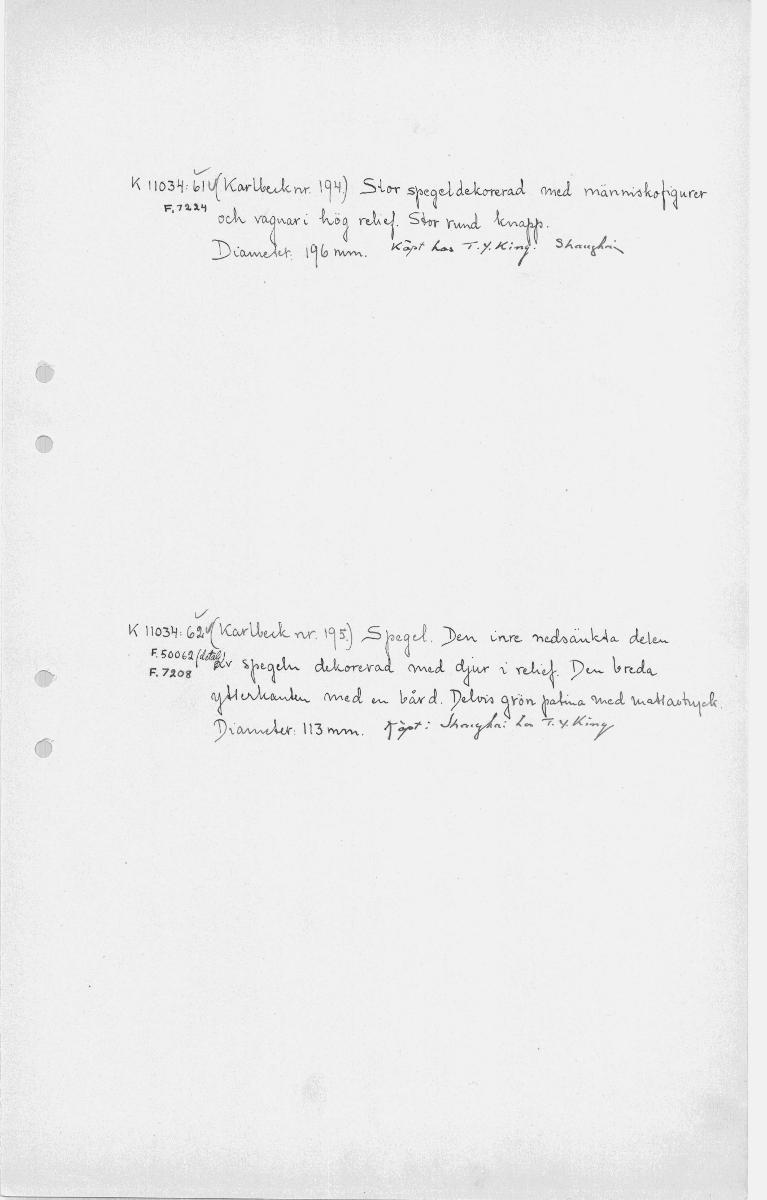 K 11034:61 ✓ (Karlbeck nr. 194.) Stor spegel dekorerad med människofigurer
F. 7224
och vagnar i hög relief. Stor rund knapp.
Diameter: 196 mm. Köpt hos T.Y. King. Shanghai
K 11034:62 ✓ (Karlbeck nr. 195.) Spegel. Den inre nedsänkta delen
F. 50062 (detalj)
av spegeln dekorerad med djur i relief. Den breda
F. 7208
ytterkanten med en bård. Delvis grön patina med mattavtryck.
Diameter: 113 mm. Köpt i Shanghai hos T.Y. King